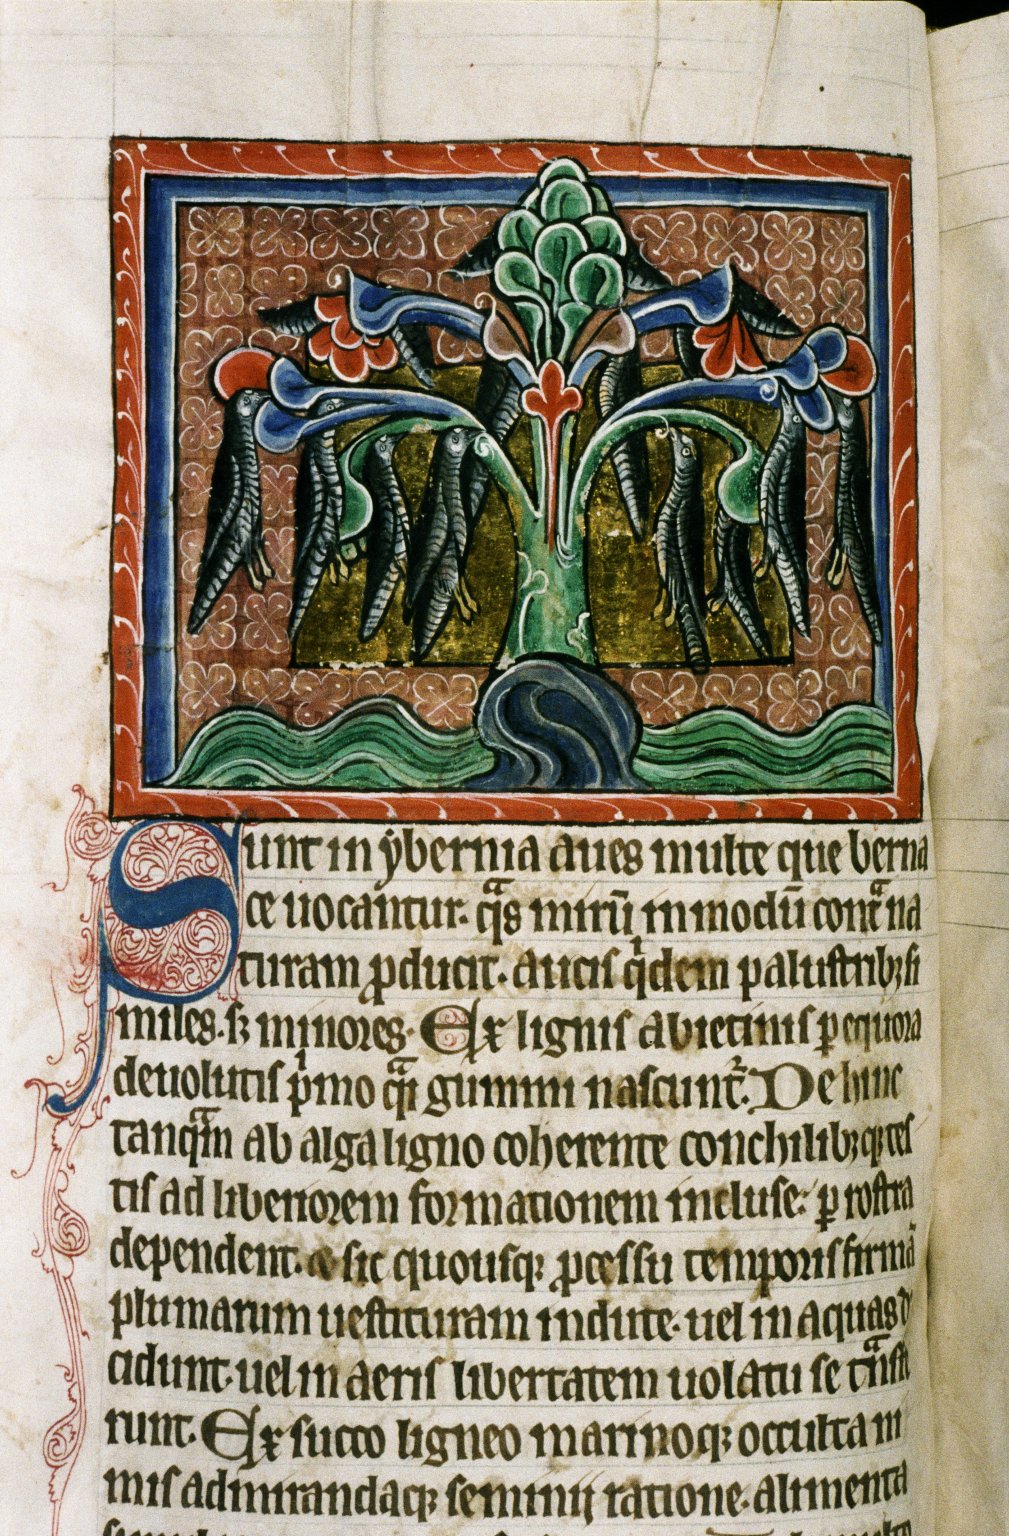 Sunt in ẏbernia aues multe que berna
ce uocantur. qͣs mirū in modū contͣ na
turam ꝓducit. Aucis qͥdem palustribꝫ si
miles. sꝫ minores. Ex lignis abietinis ꝑ equora
deuolutis pͥmo qͣi gummi nascuntᷣ. De hinc
tanqͣm ab alga ligno coherente conchilibꝫ qꝫ tes
tis ad liberiorem formationem incluse: ꝑ rostra
dependent. & sic quousqꝫ ꝓcessu temporis firmā
plumarum uestituram indute. uel in aquas de
cidunt. uel in aeris libertatem uolatu se tͣnsfe
runt. Ex succo ligneo marinoqꝫ occulta ni
mis admirandaqꝫ seminii ratione. alimenta